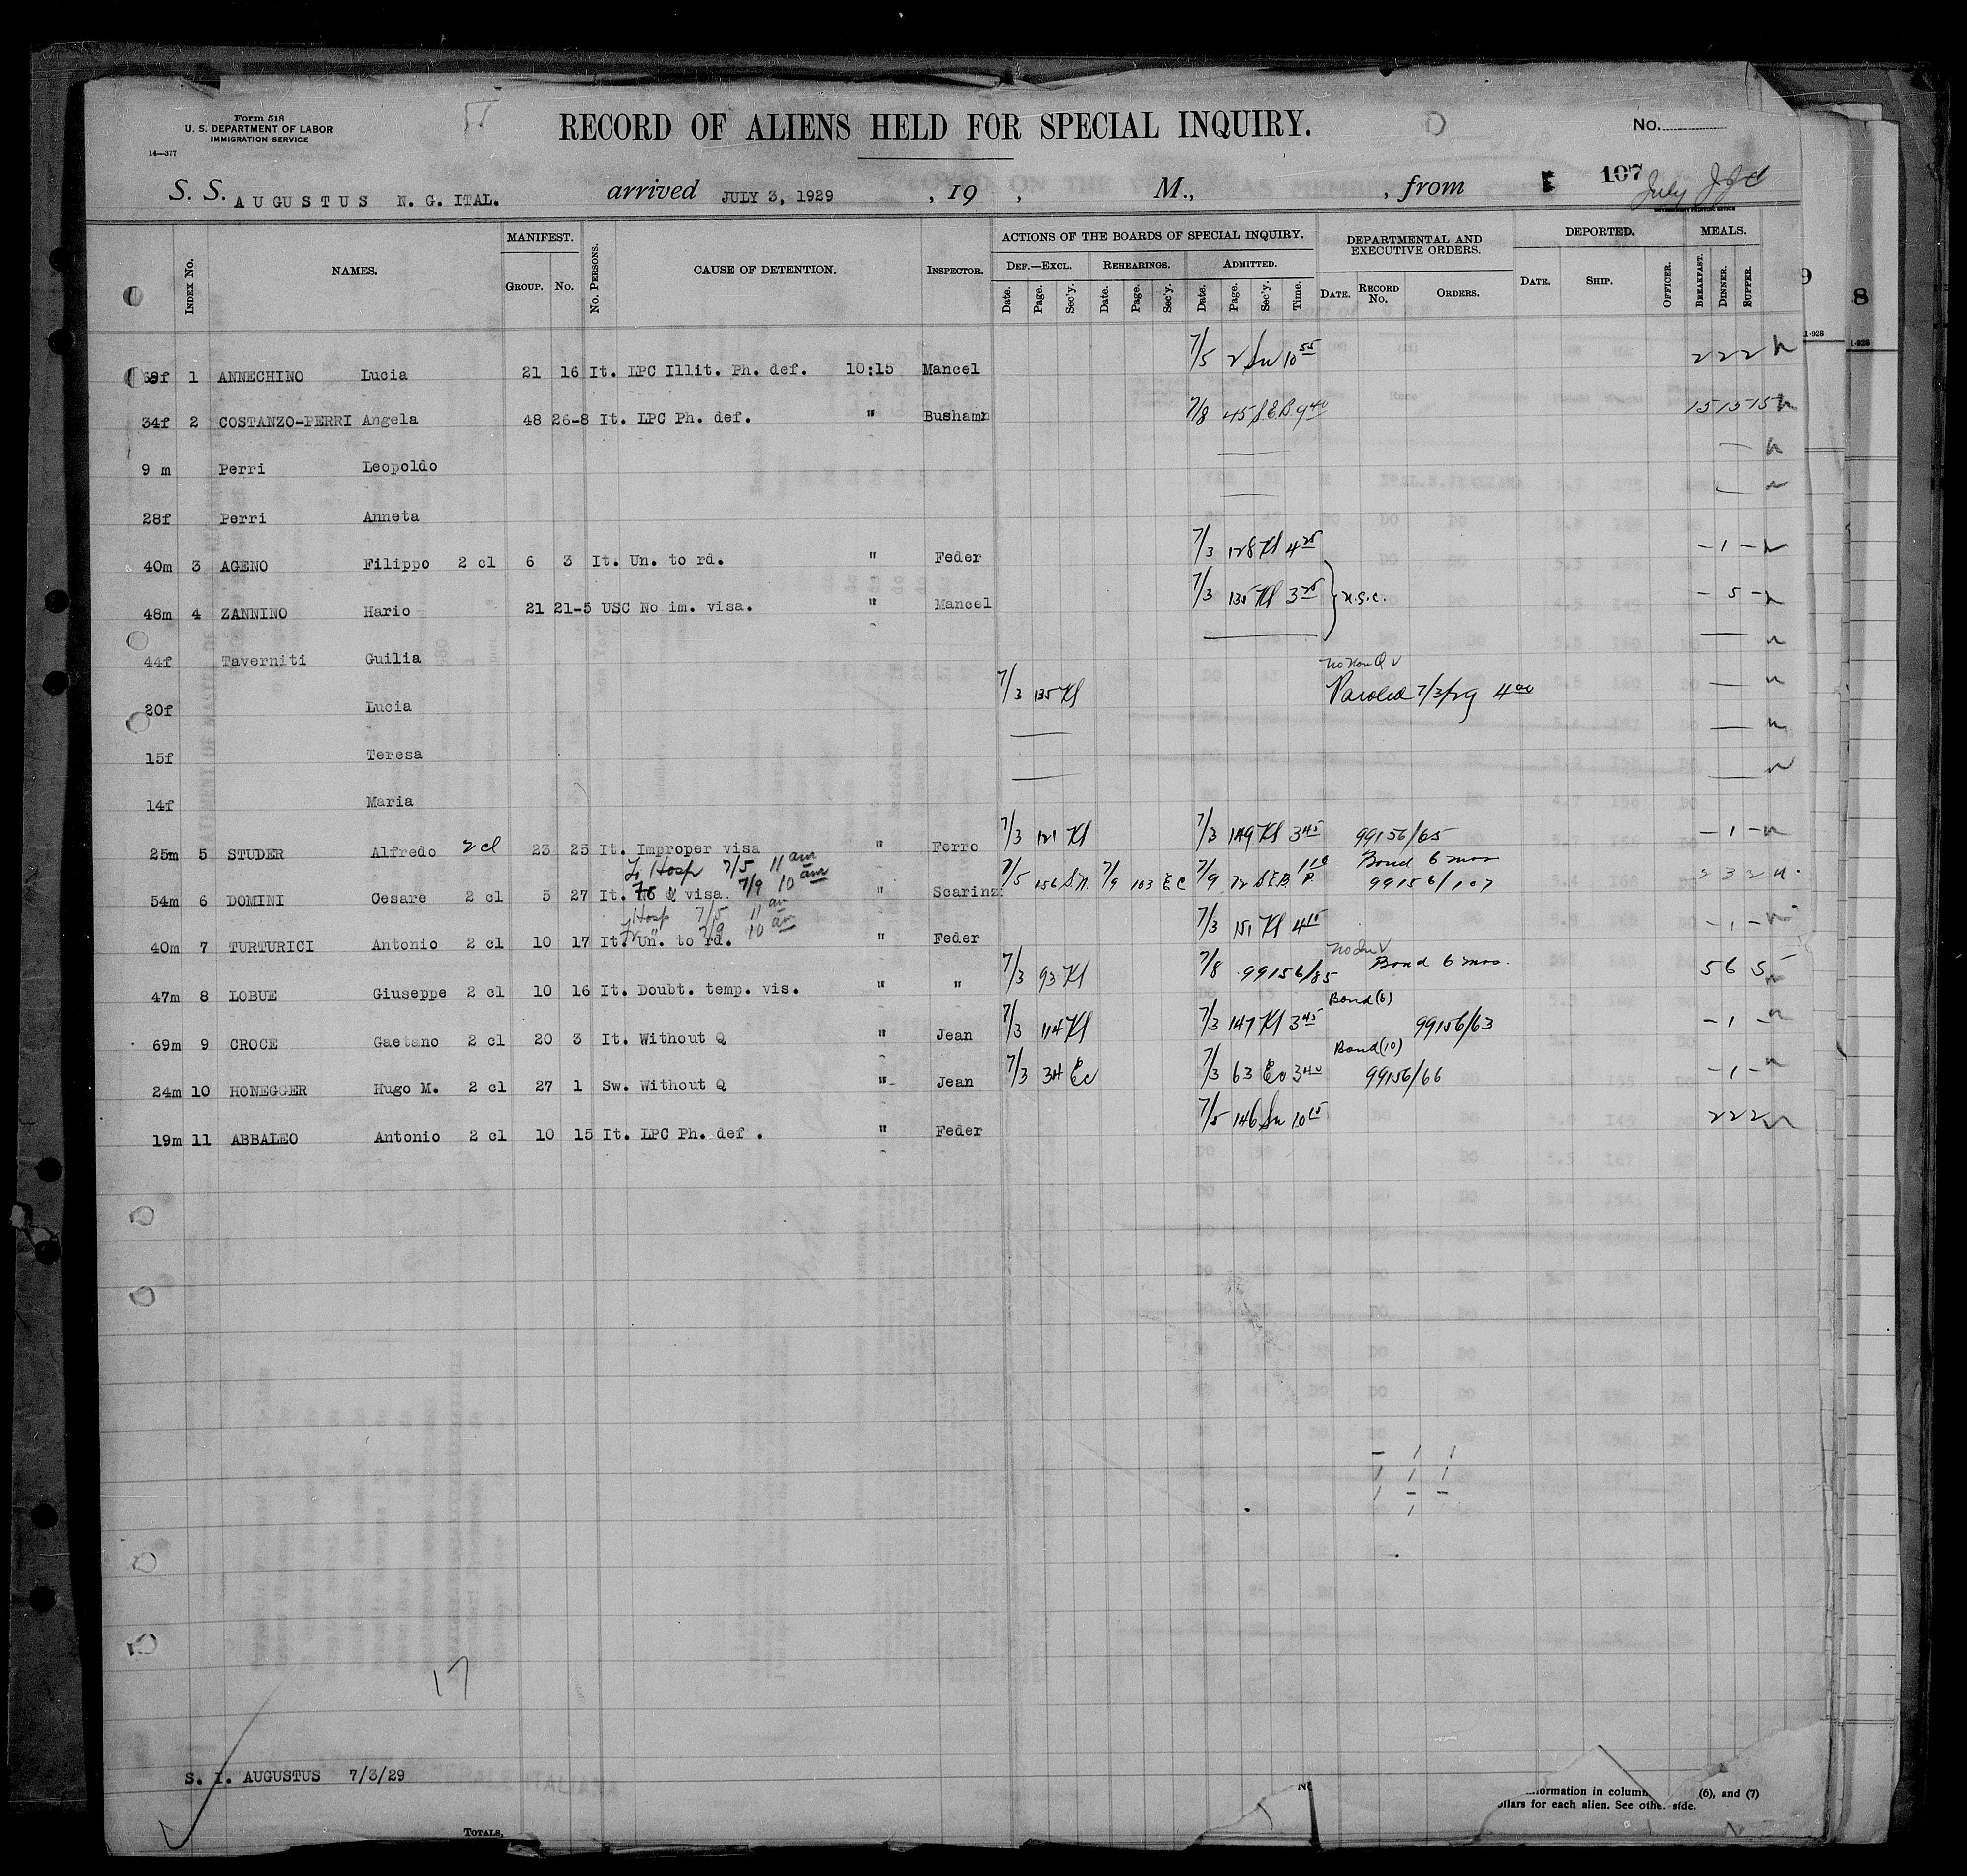 Form 518
U. S. DEPARTMENT OF LABOR
IMMIGRATION SERVICE
14—377
RECORD OF ALIENS HELD FOR SPECIAL INQUIRY.
No.
107
S. S. AUGUSTUS N. G. ITAL. arrived JULY 3, 1929, 19 , M., , from
July
GOVERNMENT PRINTING OFFICE
Index No. NAMES. MANIFEST. No. Persons. CAUSE OF DETENTION. Inspector. ACTIONS OF THE BOARDS OF SPECIAL INQUIRY. DEPARTMENTAL AND EXECUTIVE ORDERS. DEPORTED. MEALS.
Group. No. Def.—Excl. Rehearings. Admitted. Date. Record No. Orders. Date. Ship. Officer. Breakfast. Dinner. Supper.
Date. Page. Sec'y. Date. Page. Sec'y. Date. Page. Sec'y. Time.
1 ANNECHINO Lucia 21 16 It. LPC Illit. Ph. def. 10:15 Mancel 7/5 2 Su 10 55 2 2 2
34f 2 COSTANZO-PERRI Angela 48 26-8 It. LPC Ph. def. " Bushamn 7/8 45 S.E.B. 9 40 15 15 15
9 m Perri Leopoldo
28f Perri Anneta
40m 3 AGENO Filippo 2 cl 6 3 It. Un. to rd. " Feder 7/3 128 Kl 4 25 – 1 –
48m 4 ZANNINO Hario 21 21-5 USC No im. visa. " Mancel 7/3 135 Kl 3 25 U.S.C. – 5 –
44f Taverniti Guilia
20f Lucia 7/3 135 Kl Paroled 7/3/29 4 00
15f Teresa
14f Maria
25m 5 STUDER Alfredo 2 cl 23 25 It. Improper visa " Ferro 7/3 121 Kl 7/3 149 Kl 3 45 99156/65 – 1 –
To Hosp 7/5 11 am
Bond 6 mos
54m 6 DOMINI Cesare 2 cl 5 27 It. No Q visa. 7/9 10 am " Scarinzi 7/5 156 S.N. 7/9 103 E C 7/9 72 S E B 1 10 P 99156/107 2 3 2
Hosp 7/5 11 am
Fr " 7/9 10 am
40m 7 TURTURICI Antonio 2 cl 10 17 It. Un. to rd. " Feder 7/3 151 Kl 4 15 – 1 –
47m 8 LOBUE Giuseppe 2 cl 10 16 It. Doubt. temp. vis. " " 7/3 93 Kl 7/8 99156/85 Bond 6 mos. 5 6 5
69m 9 CROCE Gaetano 2 cl 20 3 It. Without Q " Jean 7/3 114 Kl 7/3 147 Kl 3 45 Bond (6) 99156/63 – 1 –
24m 10 HONEGGER Hugo M. 2 cl 27 1 Sw. Without Q " Jean 7/3 34 Ec 7/3 63 Ec 3 40 Bond (10) 99156/66 – 1 –
19m 11 ABBALEO Antonio 2 cl 10 15 It. LPC Ph. def . " Feder 7/5 146 Su 10 15 2 2 2
17
S. I. AUGUSTUS 7/3/29
Totals,
(6), and (7)
for each alien. See other side.
9
8
1-928
1-928